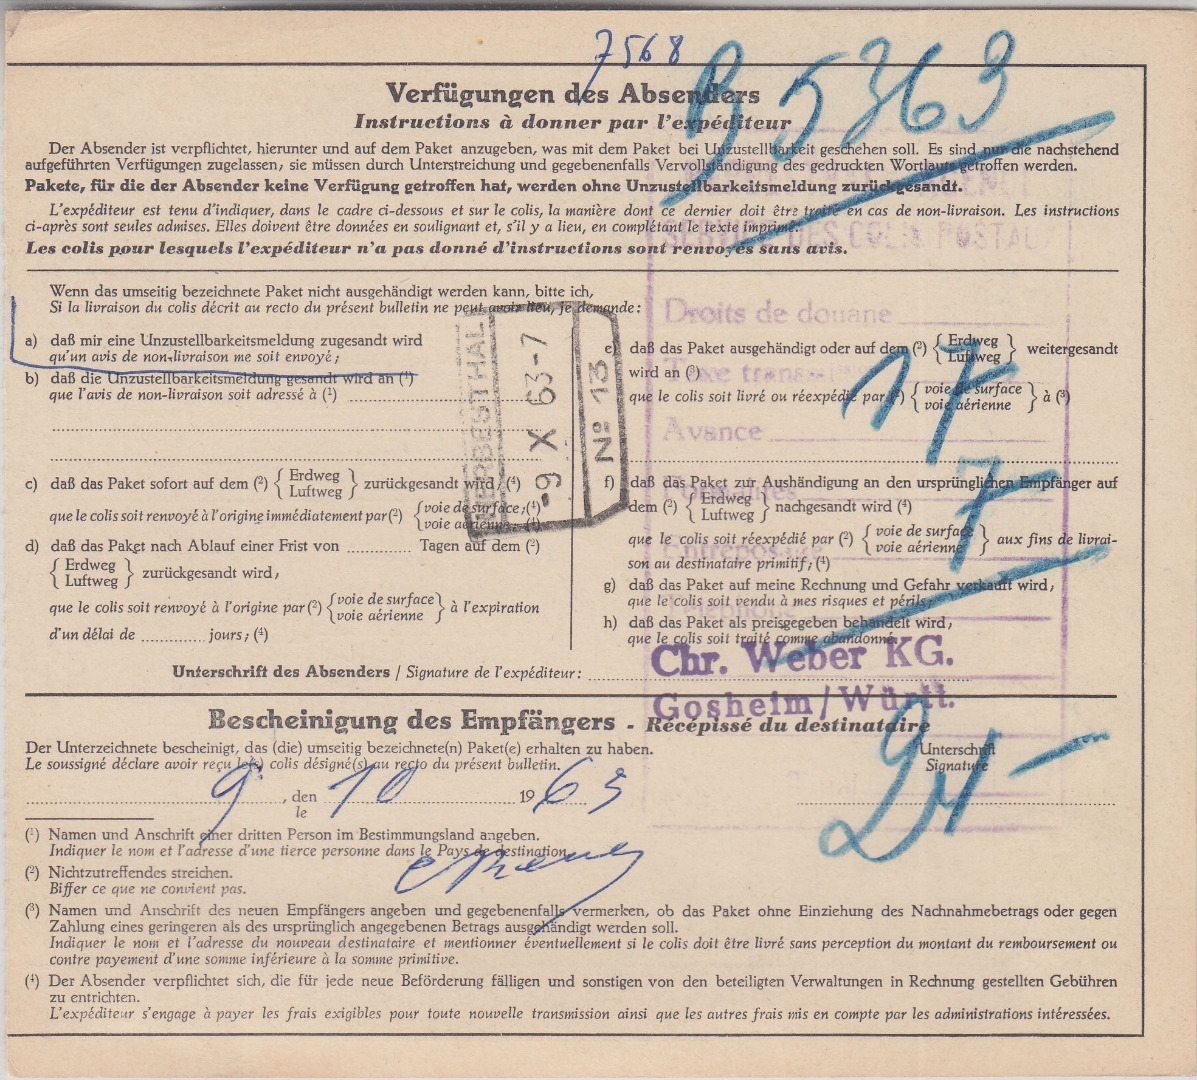 7568
B 5363
Verfügungen des Absenders
Instructions à donner par l'expéditeur
Der Absender ist verpflichtet, hierunter und auf dem Paket anzugeben, was mit dem Paket bei Unzustellbarkeit geschehen soll. Es sind nur die nachstehend
aufgeführten Verfügungen zugelassen; sie müssen durch Unterstreichung und gegebenenfalls Vervollständigung des gedruckten Wortlauts getroffen werden.
Pakete, für die der Absender keine Verfügung getroffen hat, werden ohne Unzustellbarkeitsmeldung zurückgesandt.
L'expéditeur est tenu d'indiquer, dans le cadre ci-dessous et sur le colis, la manière dont ce dernier doit être traité en cas de non-livraison. Les instructions
ci-après sont seules admises. Elles doivent être données en soulignant et, s'il y a lieu, en complétant le texte imprimé.
SERVICE DES COLIS POSTAUX
Les colis pour lesquels l'expéditeur n'a pas donné d'instructions sont renvoyés sans avis.
Wenn das umseitig bezeichnete Paket nicht ausgehändigt werden kann, bitte ich,
Si la livraison du colis décrit au recto du présent bulletin ne peut avoir lieu, je demande:
a) daß mir eine Unzustellbarkeitsmeldung zugesandt wird
qu'un avis de non-livraison me soit envoyé;
b) daß die Unzustellbarkeitsmeldung gesandt wird an (¹)
que l'avis de non-livraison soit adressé à (¹)
c) daß das Paket sofort auf dem (²) { Erdweg Luftweg } zurückgesandt wird; (⁴)
que le colis soit renvoyé à l'origine immédiatement par (²) { voie de surface; (⁴) voie aérienne; (⁴)
d) daß das Paket nach Ablauf einer Frist von ............ Tagen auf dem (²)
{ Erdweg Luftweg } zurückgesandt wird;
que le colis soit renvoyé à l'origine par (²) { voie de surface voie aérienne } à l'expiration
d'un délai de ............ jours; (⁴)
HERBESTHAL
-9 X 63-7
Nº 13
Droits de douane
Avance
Téléphone
e) daß das Paket ausgehändigt oder auf dem (²) { Erdweg Luftweg } weitergesandt
wird an (³)
que le colis soit livré ou réexpédié par (²) { voie de surface voie aérienne } à (³)
17
f) daß das Paket zur Aushändigung an den ursprünglichen Empfänger auf
dem (²) { Erdweg Luftweg } nachgesandt wird (⁴)
que le colis soit réexpédié par (²) { voie de surface voie aérienne } aux fins de livrai-
son au destinataire primitif; (⁴)
7
g) daß das Paket auf meine Rechnung und Gefahr verkauft wird;
que le colis soit vendu à mes risques et périls;
h) daß das Paket als preisgegeben behandelt wird;
que le colis soit traité comme abandonné.
Unterschrift des Absenders / Signature de l'expéditeur:
Chr. Weber KG.
Gosheim/Württ.
Bescheinigung des Empfängers - Récépissé du destinataire
Der Unterzeichnete bescheinigt, das (die) umseitig bezeichnete(n) Paket(e) erhalten zu haben.
Le soussigné déclare avoir reçu le(s) colis désigné(s) au recto du présent bulletin.
Unterschrift
Signature
9 , den 10 19 63
le
24 -
(¹) Namen und Anschrift einer dritten Person im Bestimmungsland angeben.
Indiquer le nom et l'adresse d'une tierce personne dans le Pays de destination.
(²) Nichtzutreffendes streichen.
Biffer ce que ne convient pas.
(³) Namen und Anschrift des neuen Empfängers angeben und gegebenenfalls vermerken, ob das Paket ohne Einziehung des Nachnahmebetrags oder gegen
Zahlung eines geringeren als des ursprünglich angegebenen Betrags ausgehändigt werden soll.
Indiquer le nom et l'adresse du nouveau destinataire et mentionner éventuellement si le colis doit être livré sans perception du montant du remboursement ou
contre payement d'une somme inférieure à la somme primitive.
(⁴) Der Absender verpflichtet sich, die für jede neue Beförderung fälligen und sonstigen von den beteiligten Verwaltungen in Rechnung gestellten Gebühren
zu entrichten.
L'expéditeur s'engage à payer les frais exigibles pour toute nouvelle transmission ainsi que les autres frais mis en compte par les administrations intéressées.